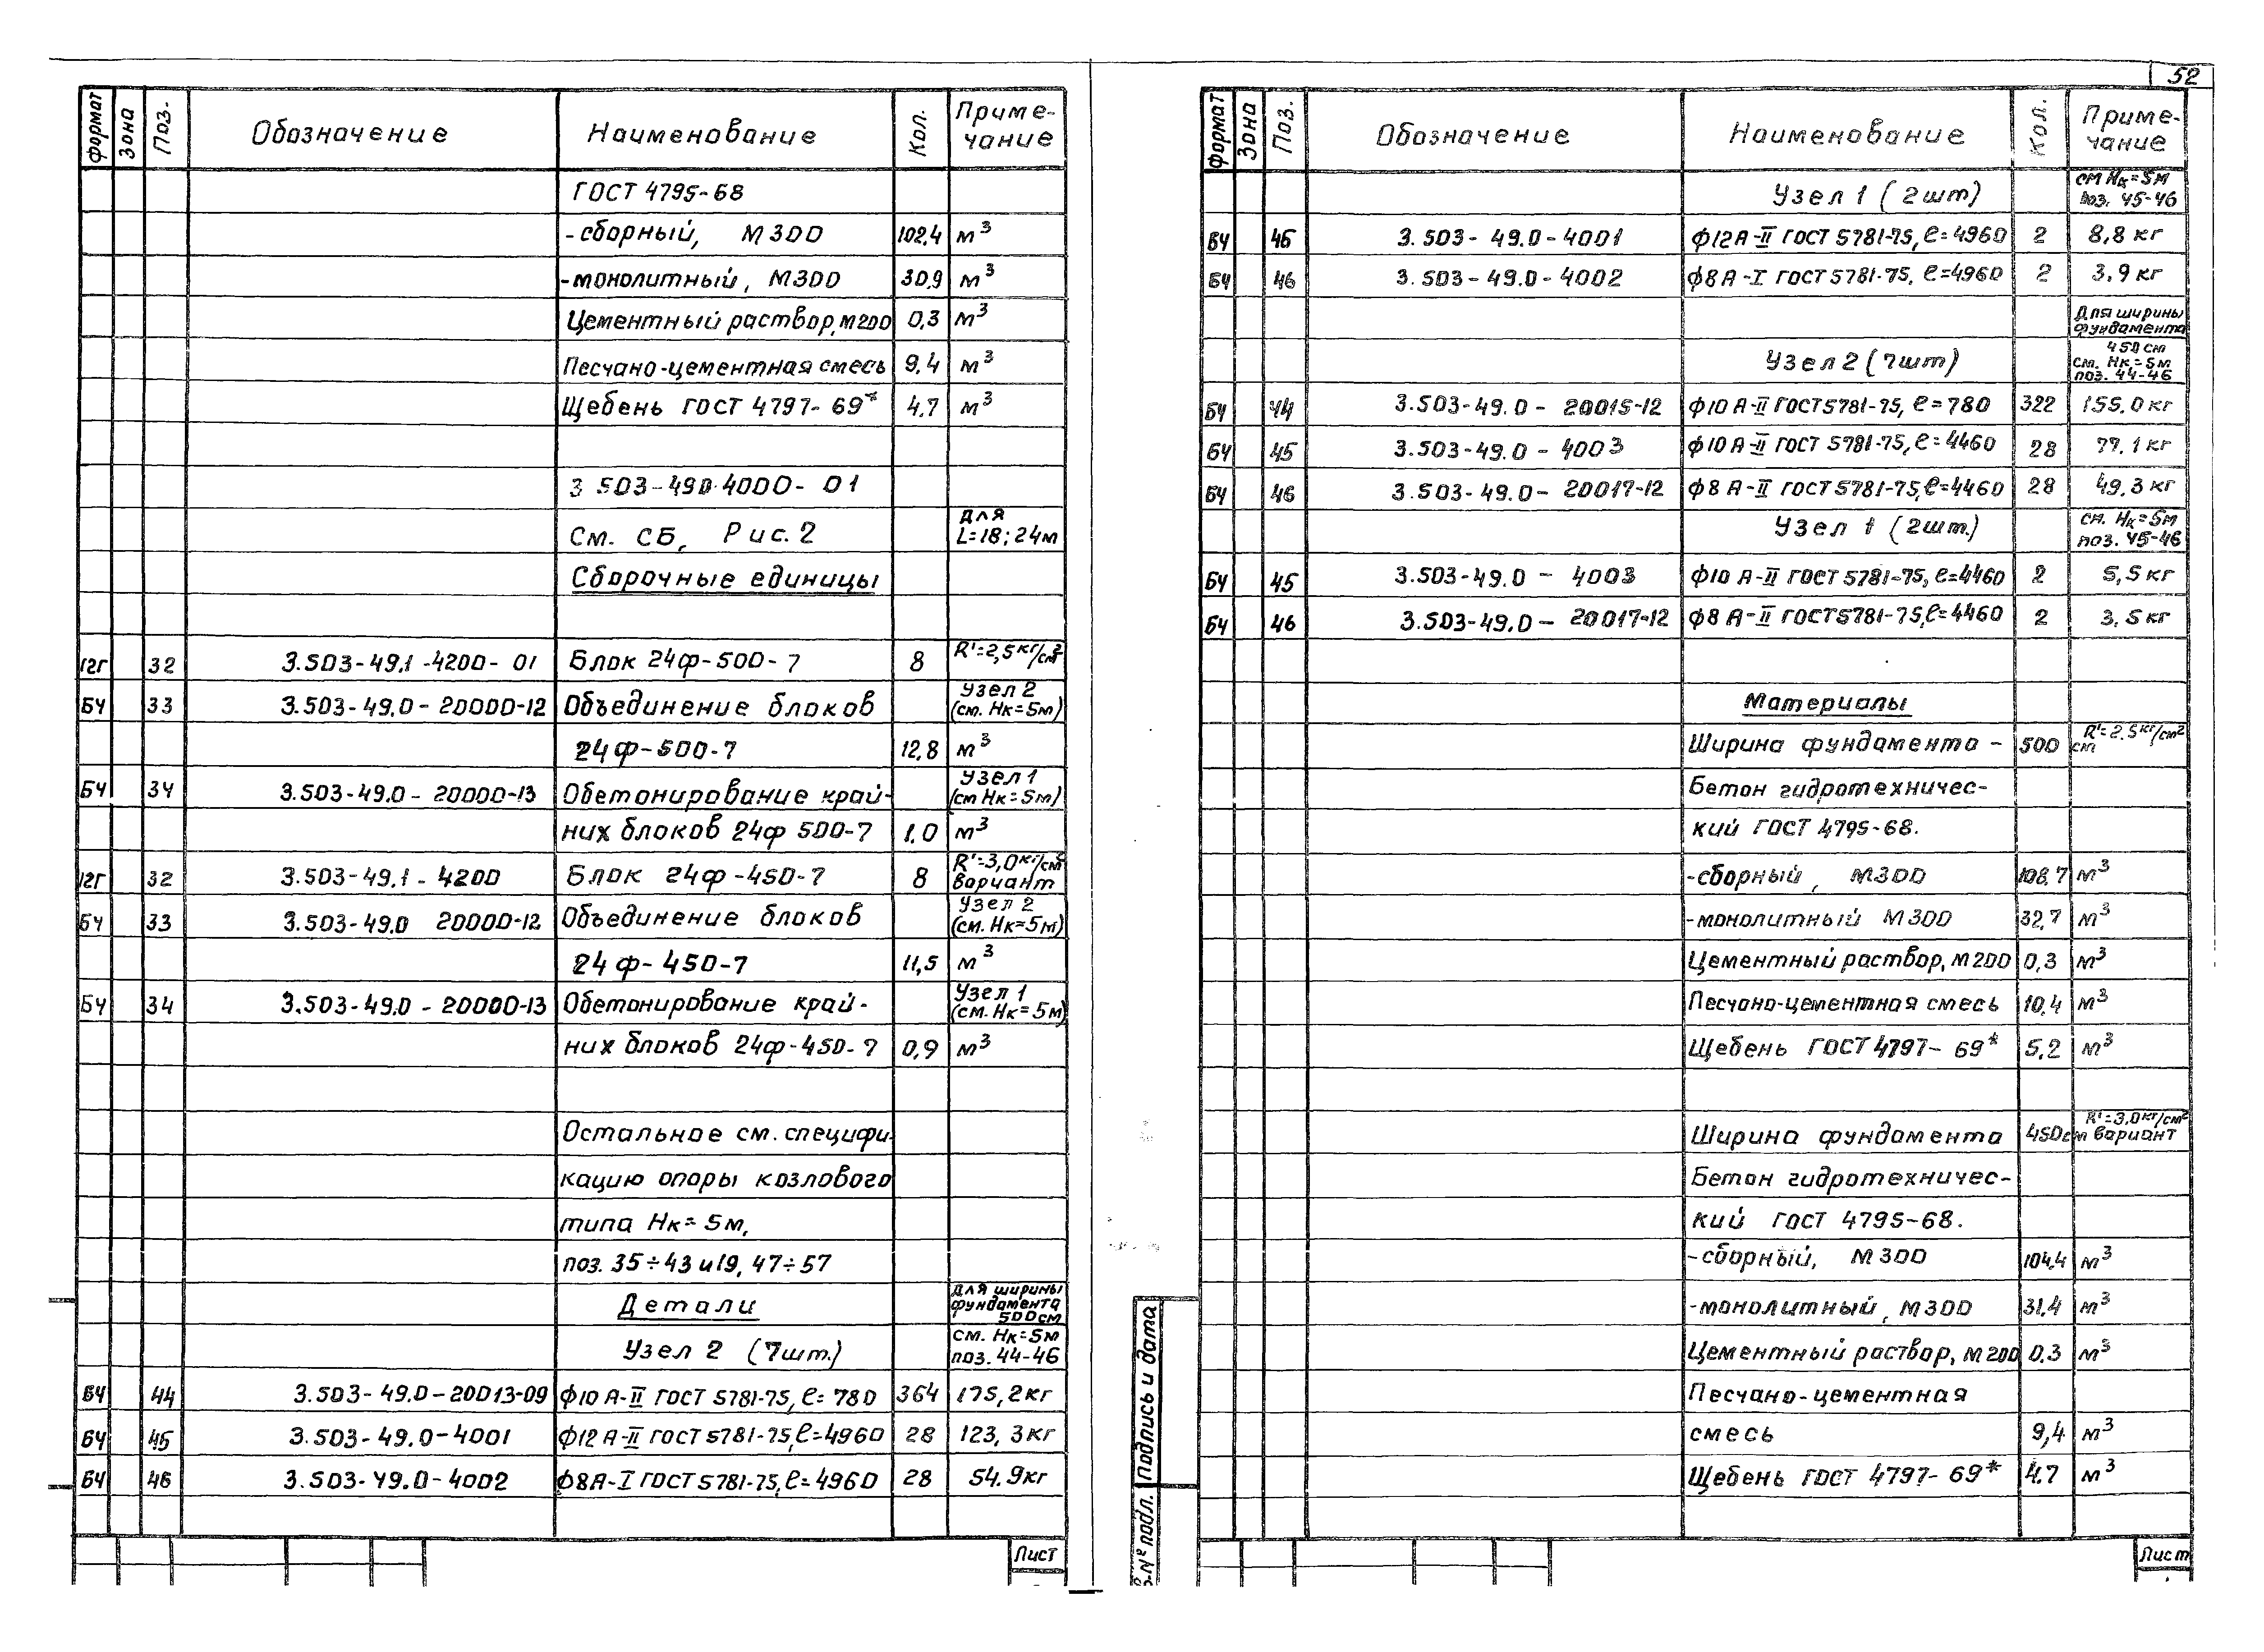 52
Формат Зона Поз. Обозначение Наименование Кол. Приме-
чание
ГОСТ 4795-68
-сборный, М300 102,4 м³
-монолитный, М300 30,9 м³
Цементный раствор, М200 0,3 м³
Песчано-цементная смесь 9,4 м³
Щебень ГОСТ 4797-69* 4,7 м³
3 503-49.0-4000-01
См. СБ, Рис. 2 для
L=18; 24м
Сборочные единицы
12Г 32 3.503-49.1-4200-01 Блок 24ф-500-7 8 R'=2,5кг/см²
БЧ 33 3.503-49.0-20000-12 Объединение блоков Узел 2
(см. Нк=5м)
24ф-500-7 12,8 м³
БЧ 34 3.503-49.0-20000-13 Обетонирование край- Узел 1
(см Нк=5м)
них блоков 24ф 500-7 1,0 м³
12Г 32 3.503-49.1-4200 Блок 24ф-450-7 8 R'=3,0кг/см²
вариант
БЧ 33 3.503-49.0 20000-12 Объединение блоков Узел 2
(см. Нк=5м)
24ф-450-7 11,5 м³
БЧ 34 3.503-49.0-20000-13 Обетонирование край- Узел 1
(см. Нк=5м)
них блоков 24ф-450-7 0,9 м³
Остальное см. специфи-
кацию опоры козлового
типа Нк=5м,
поз. 35÷43 и 19, 47÷57
Детали для ширины
фундамента
500см
Узел 2 (7шт.) см. Нк=5м
поз. 44-46
БЧ 44 3.503-49.0-20013-09 ф10 А-II ГОСТ 5781-75, ℓ=780 364 175,2кг
БЧ 45 3.503-49.0-4001 ф12 А-II ГОСТ 5781-75, ℓ=4960 28 123,3кг
БЧ 46 3.503-49.0-4002 ф8А-I ГОСТ 5781-75, ℓ=4960 28 54.9кг
Лист
Формат Зона Поз. Обозначение Наименование Кол. Приме-
чание
Узел 1 (2шт) см Нк=5м
поз. 45-46
БЧ 45 3.503-49.0-4001 ф12А-II ГОСТ 5781-75, ℓ=4960 2 8,8 кг
БЧ 46 3.503-49.0-4002 ф8А-I ГОСТ 5781-75, ℓ=4960 2 3,9 кг
Для ширины
фундамента
Узел 2 (7шт) 450см
см. Нк=5м
поз. 44-46
БЧ 44 3.503-49.0-20015-12 ф10 А-II ГОСТ 5781-75, ℓ=780 322 155,0кг
БЧ 45 3.503-49.0-4003 ф10 А-II ГОСТ 5781-75, ℓ=4460 28 77.1кг
БЧ 46 3.503-49.0-20017-12 ф8 А-II ГОСТ 5781-75, ℓ=4460 28 49,3 кг
Узел 1 (2шт.) см. Нк=5м
поз. 45-46
БЧ 45 3.503-49.0-4003 ф10 А-II ГОСТ 5781-75, ℓ=4460 2 5,5 кг
БЧ 46 3.503-49.0-20017-12 ф8 А-II ГОСТ 5781-75, ℓ=4460 2 3,5 кг
Материалы
Ширина фундамента - 500 см R'=2.5кг/см²
Бетон гидротехничес-
кий ГОСТ 4795-68.
-сборный, М300 108,7 м³
-монолитный М300 32,7 м³
Цементный раствор, М200 0,3 м³
Песчано-цементная смесь 10,4 м³
Щебень ГОСТ 4797-69* 5,2 м³
Ширина фундамента 450см R'=3,0кг/см²
вариант
Бетон гидротехничес-
кий ГОСТ 4795-68.
-сборный, М300 104,4 м³
-монолитный, М300 31,4 м³
Цементный раствор, М200 0,3 м³
Песчано-цементная
смесь 9,4 м³
Щебень ГОСТ 4797-69* 4,7 м³
Лист
Подпись и дата
№ подл.